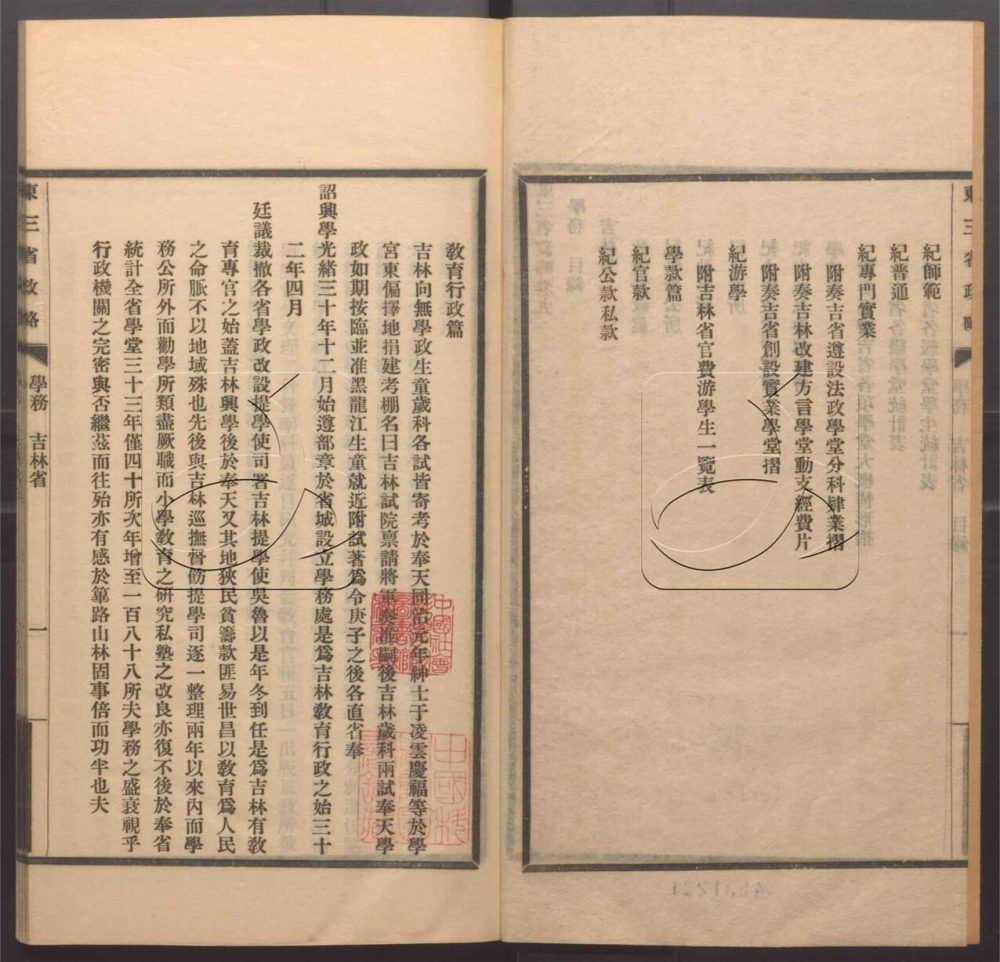 紀師範
紀普通
紀專門實業
附奏吉省遵設法政學堂分科肄業摺
附奏吉林改建方言學堂動支經費片
附奏吉省創設實業學堂摺
紀游學
附吉林省官費游學生一覽表
學款篇
紀官款
紀公款私款
教育行政篇
吉林向無學政生童歲科各試皆寄考於奉天同治元年紳士于凌雲慶福等於學
宮東偏擇地捐建考棚名曰吉林試院禀請將軍奏准嗣後吉林歲科兩試奉天學
政如期按臨並准黑龍江生童就近附試著爲令庚子之後各直省奉
詔興學光緒三十年十二月始遵部章於省城設立學務處是爲吉林教育行政之始三十
二年四月
廷議裁撤各省學政改設提學使司署吉林提學使吳魯以是年冬到任是爲吉林有教
育專官之始蓋吉林興學後於奉天又其地狹民貧籌款匪易世昌以教育爲人民
之命脈不以地域殊也先後與吉林巡撫督飭提學司逐一整理兩年以來內而學
務公所外而勸學所類盡厥職而小學教育之研究私塾之改良亦復不後於奉省
統計全省學堂三十三年僅四十所次年增至一百八十八所夫學務之盛衰視乎
行政機關之完密與否繼茲而往殆亦有感於篳路山林固事倍而功半也夫
東三省政略
學務 吉林省
一